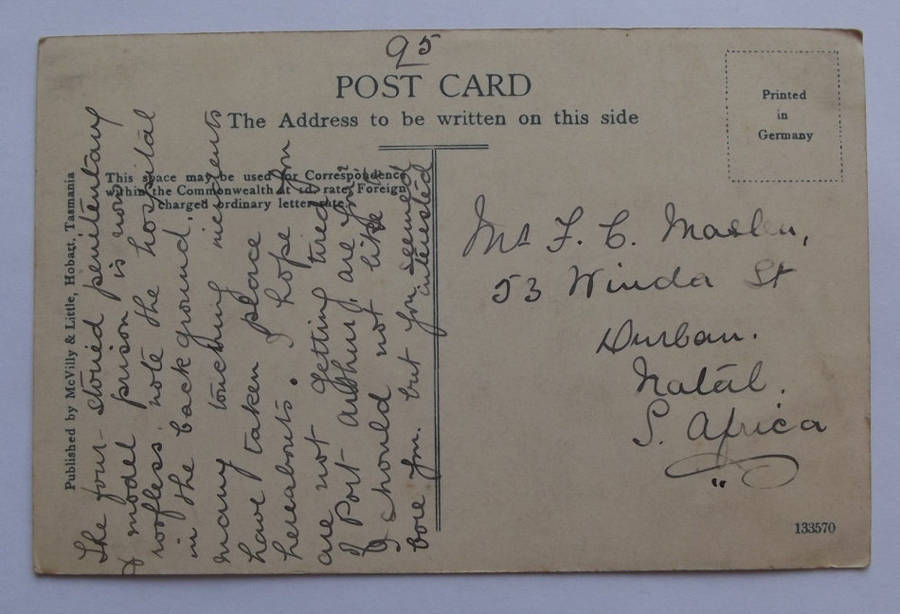 95
POST CARD
The Address to be written on this side
Printed
in
Germany
This space may be used for Correspondence
within the Commonwealth at 1d. rate, Foreign
charged ordinary letter rate.
Published by McVilly & Little, Hobart, Tasmania
The four-storied penitentiary
& model prison is now
roofless. note the hospital
in the background.
many touching incidents
have taken place
hereabouts. I hope you
are not getting tired
of Port Arthur, are you?
I should not like to
bore you. but you seemed
interested
F. C.
53 Winda St
Durban.
Natal.
S. Africa
133570